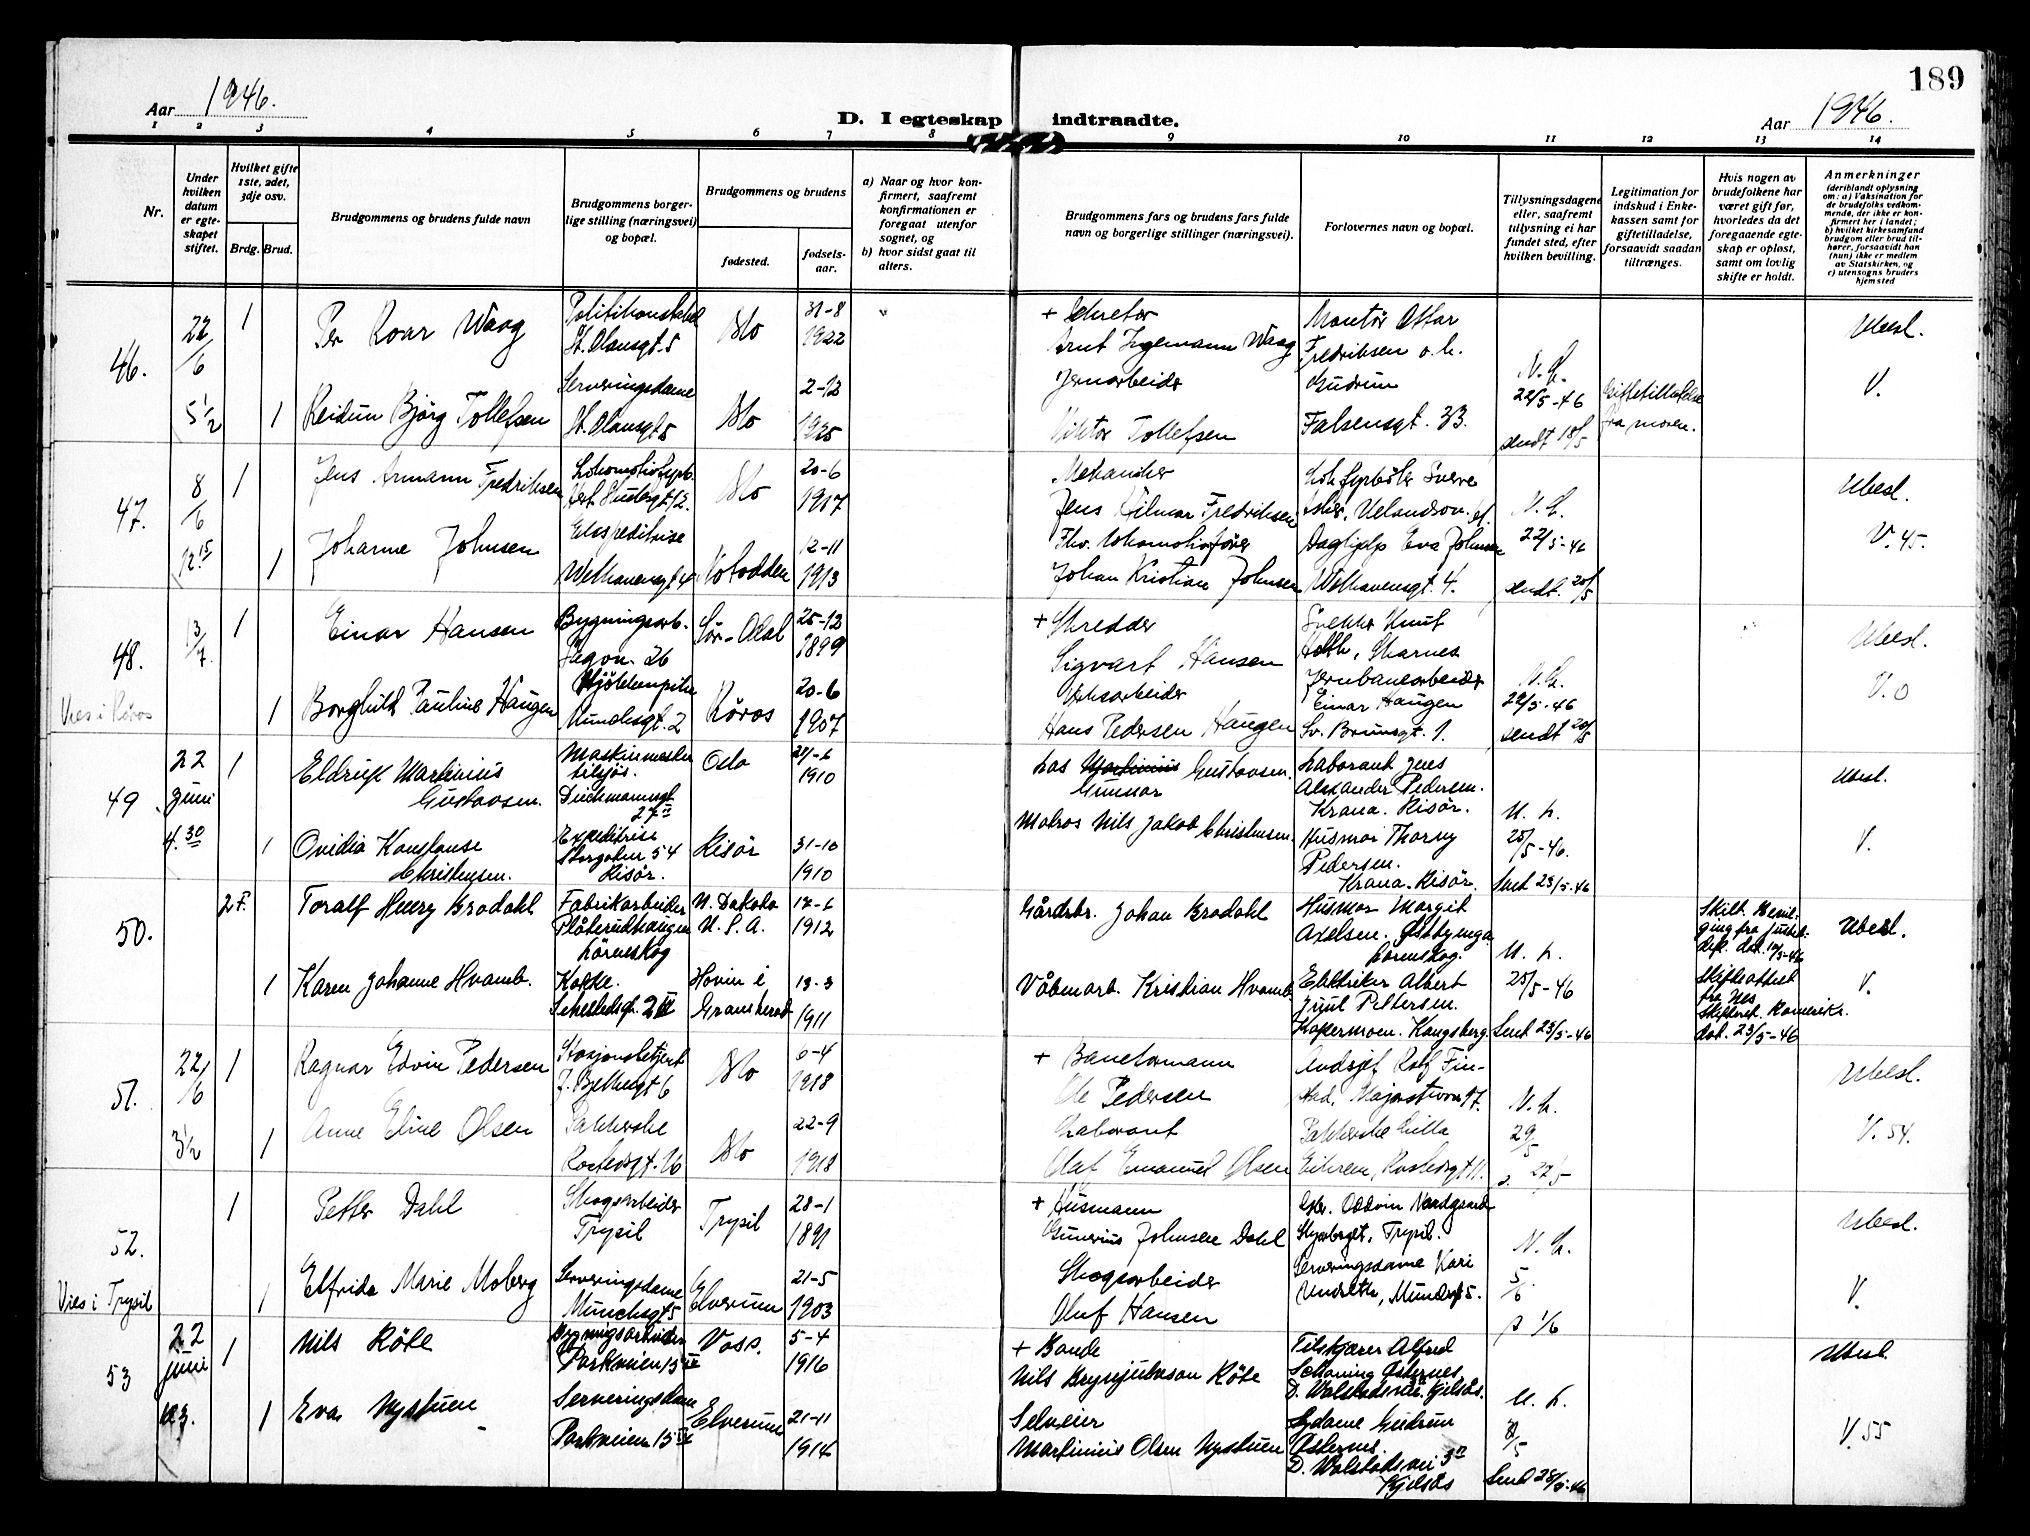 189
Aar 1946.
D. I egteskap indtraadte.
Aar 1946.
1 2 3 4 5 6 7 8 9 10 11 12 13 14
Nr.
Under hvilken datum er egteskapet stiftet.
Hvilket gifte 1ste, 2det, 3dje osv.
Brdg. Brud.
Brudgommens og brudens fulde navn
Brudgommens borgerlige stilling (næringsvei) og bopæl.
Brudgommens og brudens
fødested.
fødselsaar.
a) Naar og hvor konfirmert, saafremt konfirmationen er foregaat utenfor sognet, og
b) hvor sidst gaat til alters.
Brudgommens fars og brudens fars fulde navn og borgerlige stillinger (næringsvei).
Forlovernes navn og bopæl.
Tillysningsdagene eller, saafremt tillysning ei har fundet sted, efter hvilken bevilling.
Legitimation for indskud i Enkekassen samt for giftetilladelse, forsaavidt saadan tiltrænges.
Hvis nogen av brudefolkene har været gift før, hvorledes da det foregaaende egteskap er opløst, samt om lovlig skifte er holdt.
Anmerkninger
(deriblandt oplysning om: a) Vaksination for de brudefolks vedkommende, der ikke er konfirmert her i landet; b) hvilket kirkesamfund brudgom eller brud tilhører, forsaavidt han (hun) ikke er medlem av Statskirken, og c) utensogns bruders hjemsted
46. 22/6 5 1/2
1 Per Roar Waag
Politikonstabel St. Olavsgt. 5
Oslo 31-8 1922
+ Sekretær Arnt Ingemann Waag
Montør Ottar Fredriksen o. h. Gudrun Falsensgt. 33.
N. L. 22/5-46 sendt 18/5
Giftetilladelse fra moren.
Ubesl. V.
1 Reidun Bjørg Tollefsen
Serveringsdame St. Olavsgt 5
Oslo 2-12 1925
Jernarbeider Viktor Tollefsen
47. 8/6 12.15
1 Jens Armann Fredriksen
Oslo 20-6 1917
Mekaniker Jens Hilmar Fredriksen
N. L. 22/5-46 sendt 20/5
Ubesl. V. 45.
1 Johanne Johnsen
Ekspeditrise Welhavensgt 4
Notodden 12-11 1913
Fhv. Lokomotivfører Johan Kristian Johnsen
Daghjelp Eva Johnsen Welhavensgt. 4.
48. 13/7 Vies i Røros
1 Einar Hansen
Bygningsarb. 26
Sør-Odal 25-12 1899
+ Skredder Sigvart Hansen
Knut Holth, Skarnes
N. L. 22/5-46 sendt 20/5
Ubesl. V. 0
1 Borghild Pauline Haugen
Munchsgt. 2
Røros 20-6 1907
Hans Pedersen Haugen
Jernbanearbeider Einar Haugen Sv. Brunsgt 1.
49. 22 juni 4.30
1 Eldrup Martinius Gustavsen.
Maskinmester tilsjøs. Deichmannsgt 27 II
Oslo 1910
Los Martinius Gunnar Gustavsen.
Laborant Jens Alexander Pedersen. Krana. Risør.
U. L. 25/5-46. Sent 23/5-46
Ubesl. V.
1 Ovidia Konstanse Christensen.
Expeditrise Storgaten 54 Risør.
Risør 31-10 1910
Matros Nils Jakob Christensen.
Husmor Thorny Pedersen. Krana. Risør.
50.
2 F. Toralf Henry Brodahl
Fabrikarbeider Plåterudhaugen Lørenskog
N. Dakota U. S. A. 1912
Gårdbr. Johan Brodahl
Husmor Margit Axelsen. Lørenskog.
U. L. 25/5-46 Sent 23/5-46
Skilt. Bevilging fra justisdep. dat. 10/5-46
Skifteattest fra Nes Skifterett. Romerike. dat. 23/5-46
Ubesl. V.
1 Karen Johanne Hvamb.
Kokke.
Hovin i Gransherad 13-3 1911
Våbenarb. Kristian Hvamb
Elektriker Albert Juul Pettersen. Kongsberg.
51. 22/6 3 1/2
1 Ragnar Edvin Pedersen
Stasjonsbetjent
Oslo 6-4 1918
+ Baneformann Ole Pedersen
N. L. 29/5 s. 27/5
Ubesl. V. 54.
1 Anne Eline Olsen
Pakkerske Rostedsgt. 16
Oslo 22-9 1918
Laborant Olaf Emanuel Olsen
Pakkerske
52. Vies i Trysil
1 Petter Dahl
Skogsarbeider Trysil
Trysil 28-1 1891
+ Husmann Gunerius Johnsen Dahl
Oddvin Nordgaard Trysil.
N. L. 5/6 s 1/6
Ubesl. V.
1 Elfrida Marie Moberg
Serveringsdame Munchsgt 5
Elverum 21-5 1903
Skogsarbeider Oluf Hansen
Serveringsdame Kari Munchsgt 5.
53 22 juni
1 Nils Røte
Bygningsarbeider Parkveien 15
Voss. 5-4 1916
+ Bonde Nils Brynjulvson Røte
Alfred D. Wolstads vei. Kjelsås.
U. L. Sent 28/5-46
Ubesl. V. 55
1 Eva Nystuen
Serveringsdame Parkveien 15
Elverum 21-11 1914
Selveier Martinius Olsen Nystuen
Gudrun D. Wolstads vei 3 Kjelsås